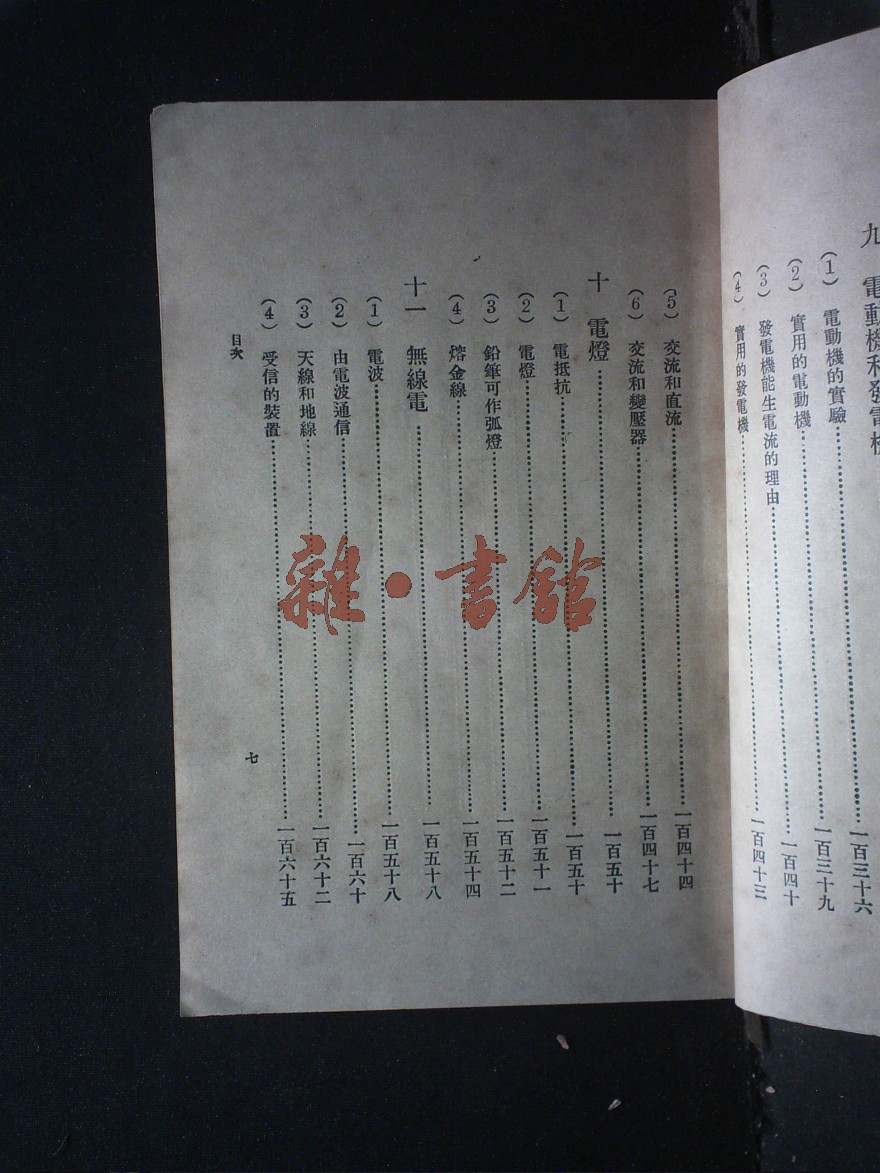 九 電動機和發電機……一百三十六
（1） 電動機的實驗……一百三十九
（2） 實用的電動機……一百四十
（3） 發電機能生電流的理由
（4） 實用的發電機……一百四十三
（5） 交流和直流……一百四十四
（6） 交流和變壓器……一百四十七
十 電燈……一百五十
（1） 電抵抗……一百五十
（2） 電燈……一百五十一
（3） 鉛筆可作弧燈……一百五十二
（4） 熔金線……一百五十四
十一 無線電……一百五十八
（1） 電波……一百五十八
（2） 由電波通信……一百六十
（3） 天線和地線……一百六十二
（4） 受信的裝置……一百六十五
目次
七
雜·書館